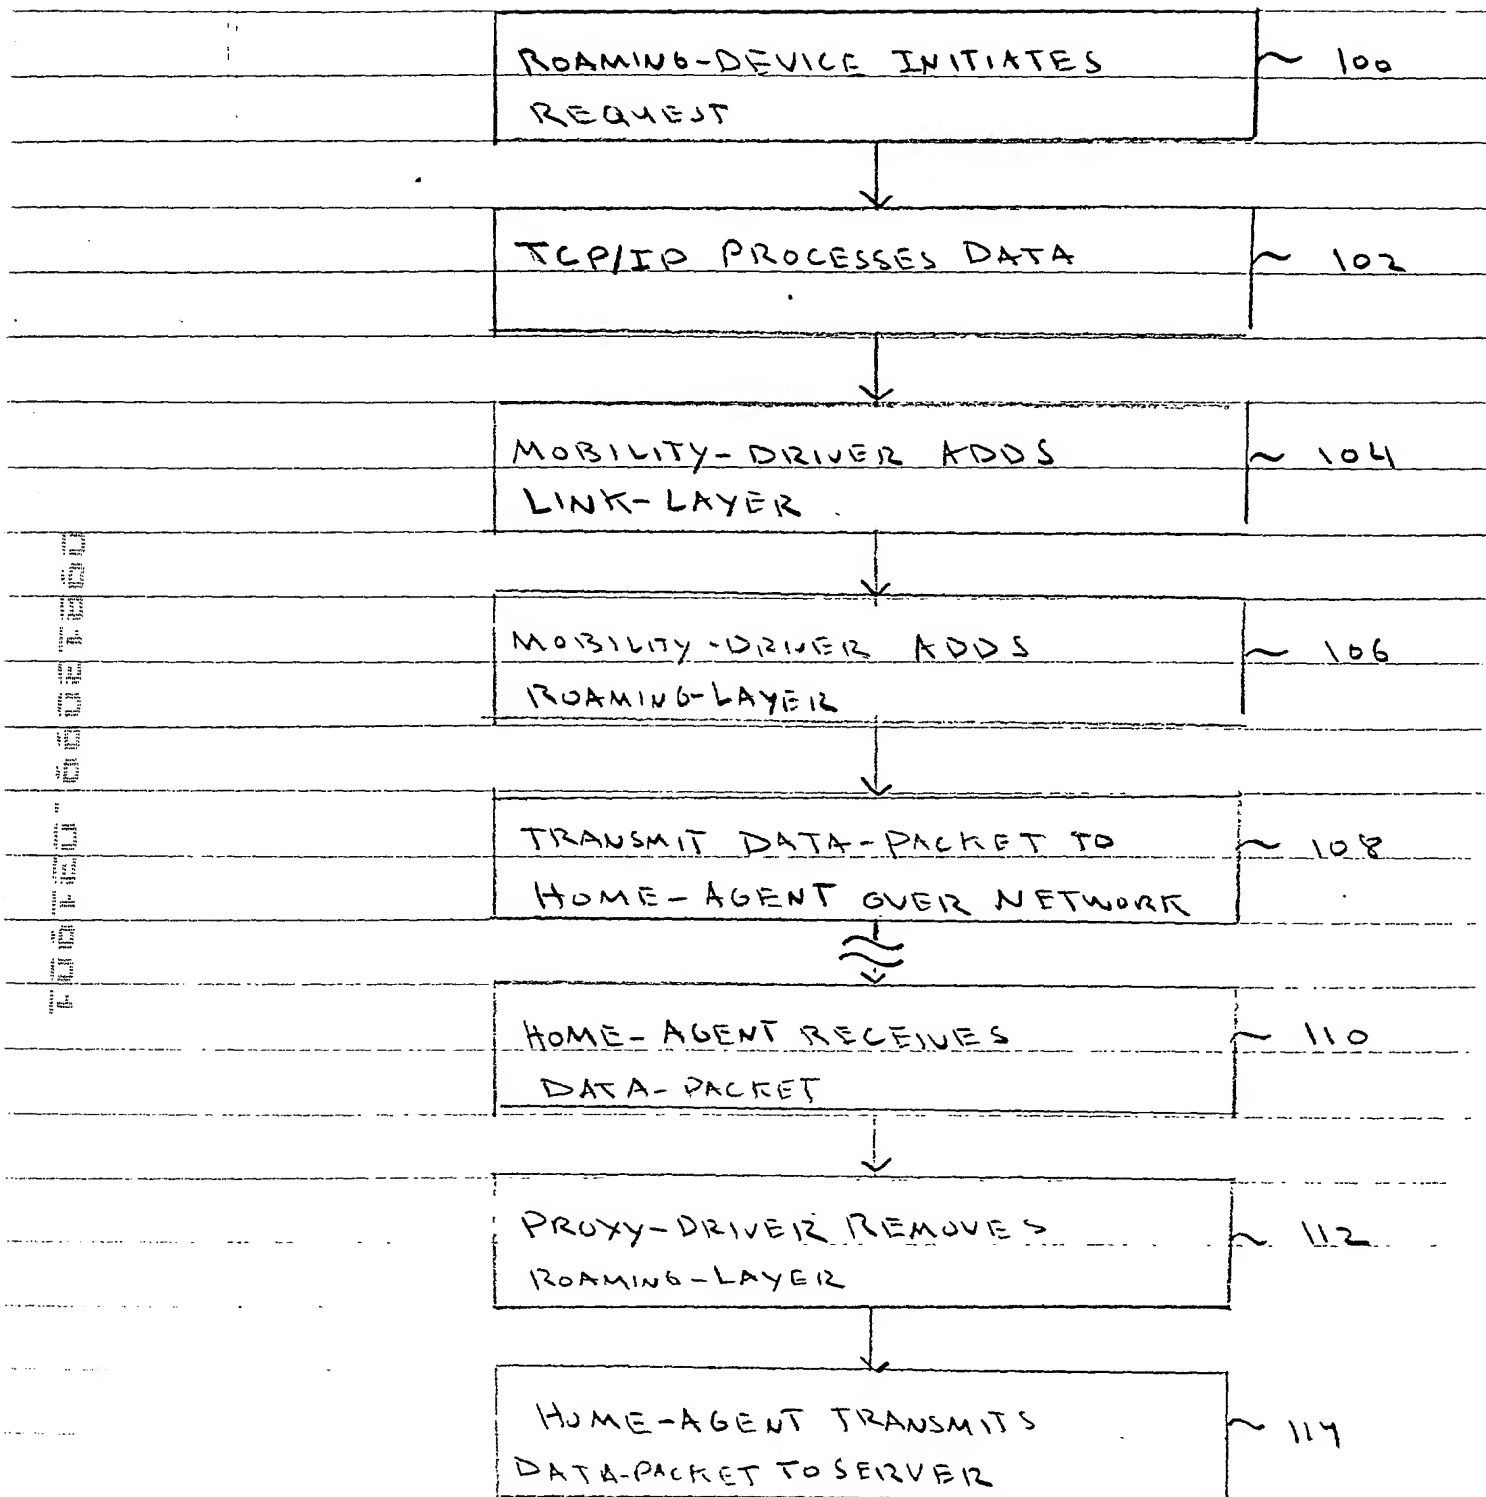 ROAMING-DEVICE INITIATES ~ 100
REQUEST
TCP/IP PROCESSES DATA ~ 102
MOBILITY-DRIVER ADDS ~ 104
LINK-LAYER
MOBILITY-DRIVER ADDS ~ 106
ROAMING-LAYER
TRANSMIT DATA-PACKET TO ~ 108
HOME-AGENT OVER NETWORK
HOME-AGENT RECEIVES ~ 110
DATA-PACKET
PROXY-DRIVER REMOVES ~ 112
ROAMING-LAYER
HOME-AGENT TRANSMITS ~ 114
DATA-PACKET TO SERVER